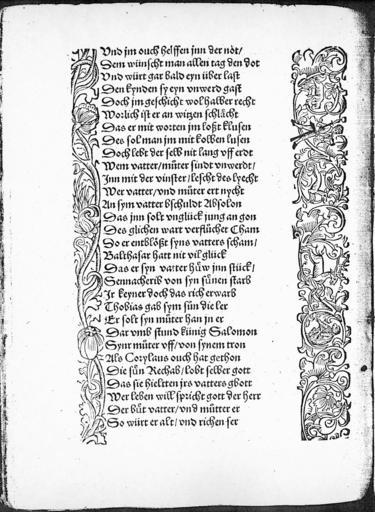 Vnd jm ouch helffen jnn der nöt/
Dem wünscht man allen tag den dot
Vnd würt gar bald eyn über last
Den kynden sy eyn vnwerd gast
Doch jm geschicht wol halber recht
Worlich ist er an witzen schlächt
Das er mit worten jm loßt klusen
Des sol man jm mit kolben lusen
Doch lebt der selb nit lang vff erdt
Wem vatter/müter sindt vnwerdt/
Jnn mit der vinster/lescht des lyecht
Wer vatter/vnd müter ert nycht
An sym vatter bschuldt Absolon
Das jnn solt vnglück jung an gon
Des glichen wart verflücht Cham
Do er entblößt syns vatters scham/
Balthasar hatt nit vil glück
Das er syn vatter hüw jnn stück/
Sennacherib von syn sünen starb
Jr keyner doch das rich erwarb
Thobias gab sym sün die ler
Er solt syn müter han jn er
Dar vmb stund künig Salomon
Synr müter vff/von synem tron
Als Corylaus ouch hat gethon
Die sün Rechab/lobt selber gott
Das sie hielten jrs vatters gbott
Wer leben will spricht gott der herr
Der büt vatter/vnd mütter er
So würt er alt/vnd richen ser